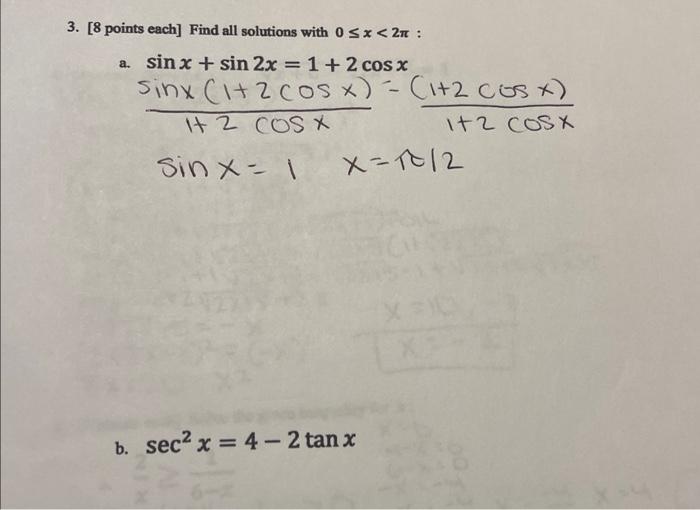 3. [8 points each] Find all solutions with 0 ≤ x < 2π :
a. sin x + sin 2x = 1 + 2 cos x
sinx (1+2 cos x) = (1+2 cos x)
1+ 2 cos x 1+2 cosx
sin x = 1 x = π/2
b. sec² x = 4 − 2 tan x